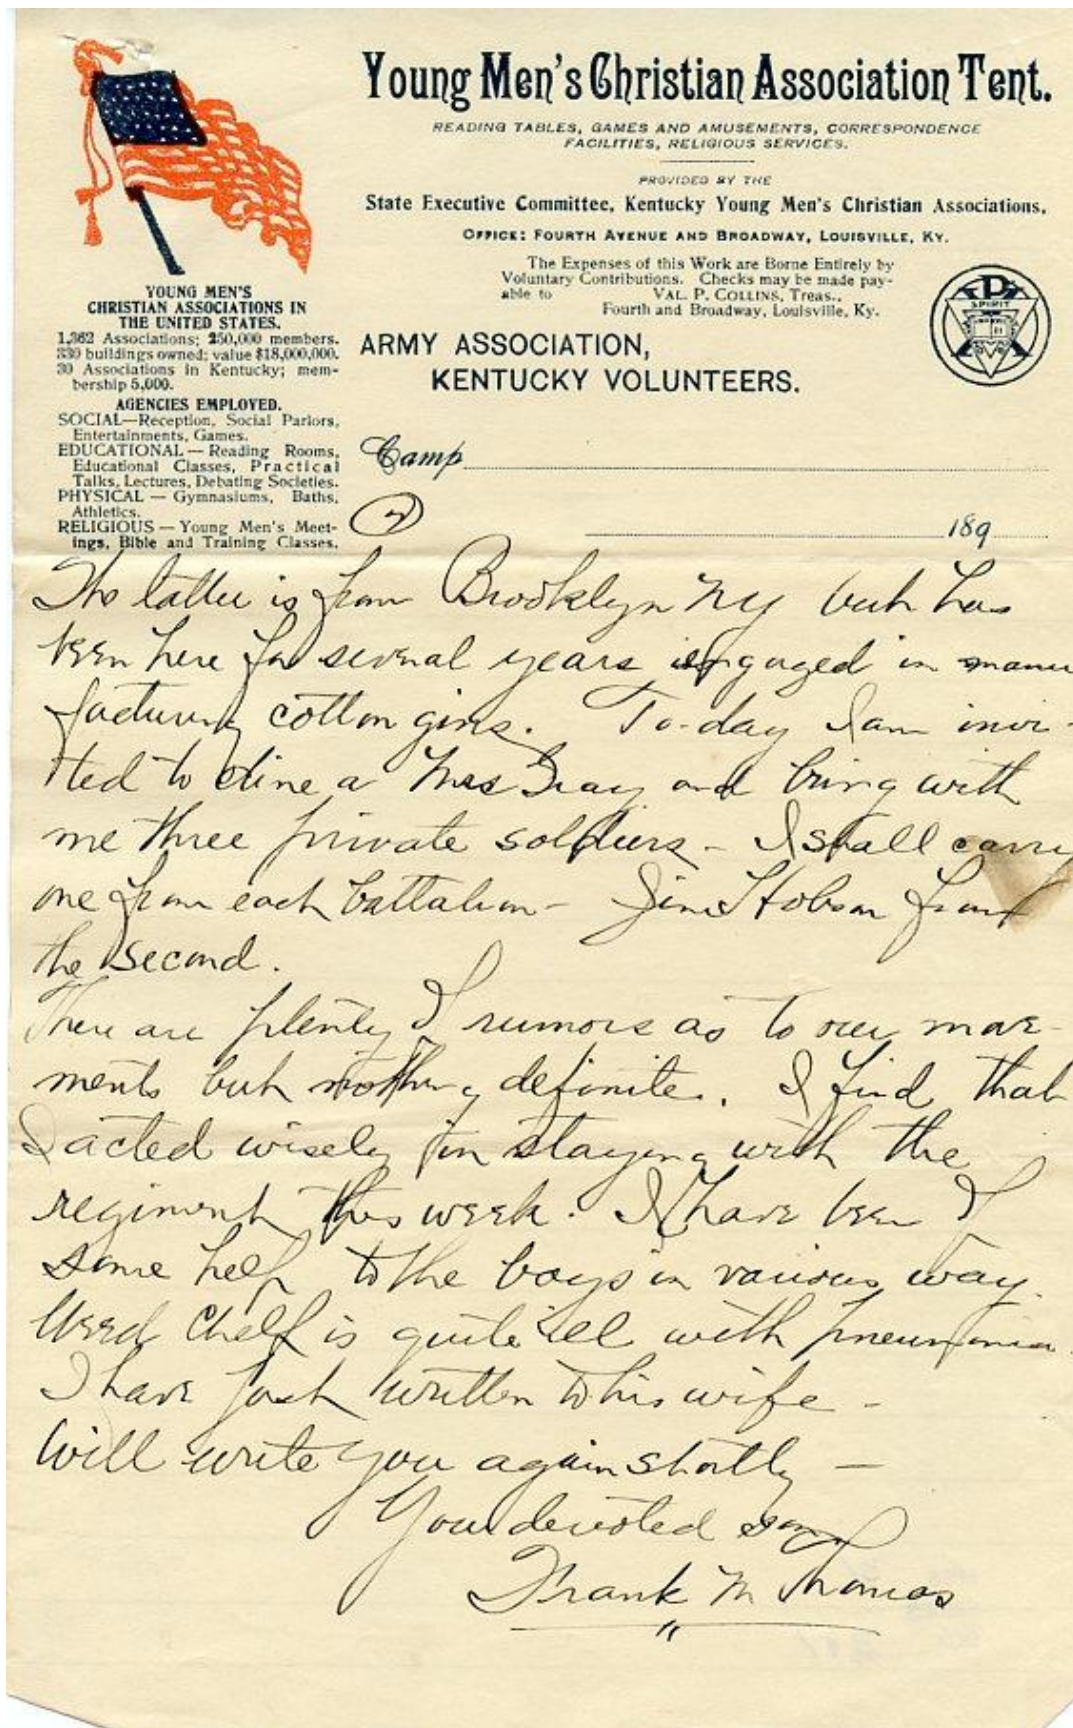 Young Men's Christian Association Tent.
READING TABLES, GAMES AND AMUSEMENTS, CORRESPONDENCE
FACILITIES, RELIGIOUS SERVICES.
PROVIDED BY THE
State Executive Committee, Kentucky Young Men's Christian Associations,
OFFICE: FOURTH AVENUE AND BROADWAY, LOUISVILLE, KY.
The Expenses of this Work are Borne Entirely by
Voluntary Contributions. Checks may be made pay-
able to VAL. P. COLLINS, Treas.,
Fourth and Broadway, Louisville, Ky.
SPIRIT
ARMY ASSOCIATION,
KENTUCKY VOLUNTEERS.
YOUNG MEN'S
CHRISTIAN ASSOCIATIONS IN
THE UNITED STATES.
1,362 Associations; 250,000 members.
330 buildings owned; value $18,000,000.
30 Associations in Kentucky; mem-
bership 5,000.
AGENCIES EMPLOYED.
SOCIAL—Reception, Social Parlors,
Entertainments, Games.
EDUCATIONAL — Reading Rooms,
Educational Classes, Practical
Talks, Lectures, Debating Societies.
PHYSICAL — Gymnasiums, Baths,
Athletics.
RELIGIOUS — Young Men's Meet-
ings, Bible and Training Classes.
Camp
189
The latter is from Brooklyn NY but has
been here for several years engaged in manu
facturing cotton gins. To-day I am invi-
ted to dine a Mrs Gray and bring with
me three private soldiers - I shall carry
one from each battalion - Jim Hobson from
the second.
There are plenty of rumors as to our move-
ments but nothing definite. I find that
I acted wisely in staying with the
regiment this week. I have been of
some help to the boys in various way.
Chelf is quite ill with pneumonia.
I have just written to his wife -
Will write you again shortly —
Your devoted son
Frank M Thomas